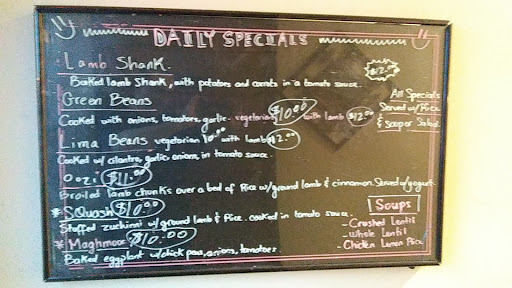 DAILY SPECIALS
Lamb Shank.
$12.00
Baked lamb Shank, with potatos and carrots in a tomato sauce.
Green Beans
Cooked with onions, tomatoes, garlic - vegetarian $10.00 with lamb $12.00
Lima Beans vegetarian 10.00 with lamb $12.00
Cooked w/ cilantro, garlic onions, in tomato sauce.
Oozi $11.00
Broiled lamb chunks over a bed of Rice w/ground lamb & cinnamon. Served w/yogurt.
* SQuash $10.00
Stuffed zucchini w/ground lamb & Rice. cooked in tomato sauce.
* Maghmoor $10.00
Baked eggplant w/chick peas, onions, tomatoes.
All Specials
Served w/Rice
& Soup or Salad.
Soups
- Crushed Lentil
- Whole Lentil
- Chicken Lemon Rice